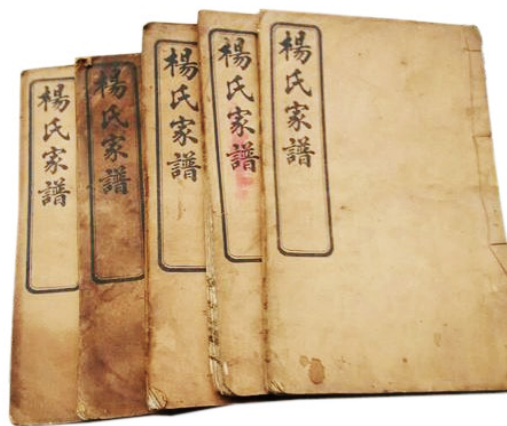 楊氏家譜
楊氏家譜
楊氏家譜
楊氏家譜
楊氏家譜